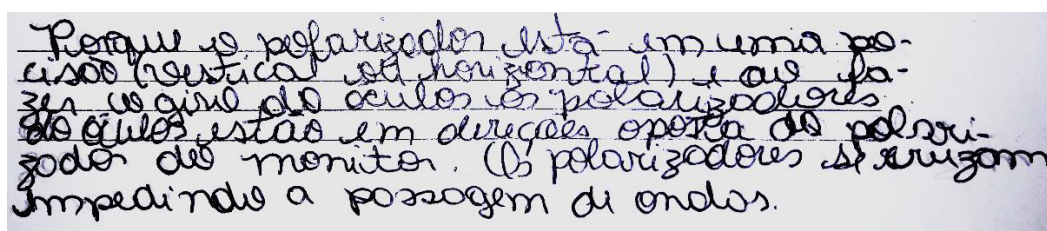 Porque o polarizador está em uma po-
cisão (vertical ou horizontal) e ao fa-
zer o giro do óculos os polarizadores
do óculos estão em direções oposta do polari-
zador do monitor. Os polarizadores se cruzam
impedindo a passagem de ondas.